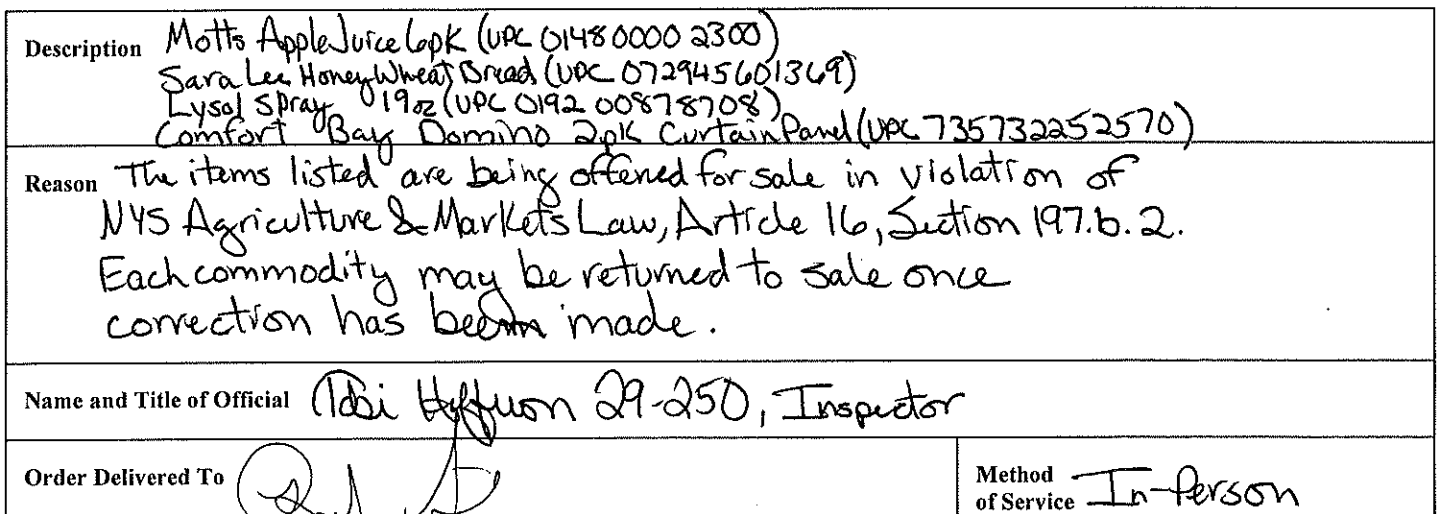 Description Motts Apple Juice 6pk (UPC 01480000 2300)
Sara Lee Honey Wheat Bread (UPC 072945601369)
Lysol Spray 19oz (UPC 0192 00878708)
Comfort Bay Domino 2pk Curtain Panel (UPC 735732252570)
Reason The items listed are being offered for sale in violation of
NYS Agriculture & Markets Law, Article 16, Section 197.b.2.
Each commodity may be returned to sale once
correction has been made.
Name and Title of Official 29-250, Inspector
Order Delivered To
Method
of Service In-Person